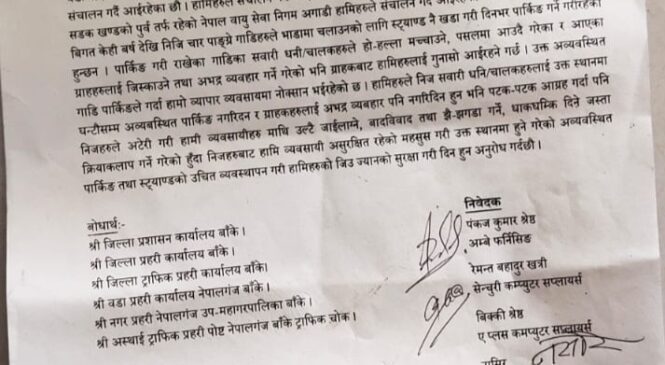 संचालन गर्दै आईरहेका छौ । हामिहरुले संचालन गर्दै आईरहेको
सडक खण्डको पुर्व तर्फ रहेको नेपाल वायु सेवा निगम अगाडी हामिहरुले संचालन गर्दै
बिगत केही बर्ष देखि निजि चार पाङ्ग्रे गाडिहरुले भाडामा चलाउनको लागि स्ट्याण्ड नै खडा गरी दिनभर पार्किङ गर्ने गरीरहेका
हुन्छन । पार्किङ गरी राखेका गाडिका सवारी धनी/चालकहरुले हो-हल्ला मच्चाउने, पसलमा आउदै गरेका र आएका
ग्राहहरुलाई जिस्काउने तथा अभद्र ब्यवहार गर्ने गरेको भनि ग्राहकबाट हामिहरुलाई गुनासो आईरहने गर्छ । उक्त अव्यवस्थित
गाडि पार्किङले गर्दा हामो व्यापार व्यवसायमा नोक्सान भईरहेको छ । हामिहरुले निज सवारी धनि/चालकहरुलाई उक्त स्थानमा
घन्टौसम्म अव्यबस्थित पार्किङ नगरिदन र ग्राहकहरुलाई अभद्र ब्यबहार पनि नगरिदिन हुन भनि पटक-पटक आग्रह गर्दा पनि
निजहरुले अटेरी गरी हामी व्यवसायीहरु माथि उल्टै जाईलाग्ने, बादविवाद तथा झै-झगडा गर्ने, धाकधम्कि दिने जस्ता
क्रियाकलाप गर्ने गरेको हुँदा निजहरुबाट हामि व्यवसायी असुरक्षित रहेको महसुस गरी उक्त स्थानमा हुने गरेको अव्यवस्थित
पार्किङ तथा स्ट्याण्डको उचित व्यवस्थापन गरी हामिहरुको जिउ ज्यानको सुरक्षा गरी दिन हुन अनुरोध गर्दछौ ।
बोधार्थ:-
श्री जिल्ला प्रशासन कार्यालय बाँके ।
श्री जिल्ला प्रहरी कार्यालय बाँके ।
श्री जिल्ला ट्राफिक प्रहरी कार्यालय बाँके।
श्री वडा प्रहरी कार्यालय नेपालगंज बाँके ।
श्री नगर प्रहरी नेपालगन्ज उप-महागरपालिका बाँके ।
श्री अस्थाई ट्राफिक प्रहरी पोष्ट नेपालगन्ज बाँके ट्राफिक चोक।
निवेदक
पंकज कुमार श्रेष्ठ
अम्बे फर्निसिङ
रेमन्त बहादुर खत्री
सेन्चुरी कम्प्युटर सप्लायर्स
बिक्की श्रेष्ठ
ए प्लस कम्प्युटर सप्लायर्स